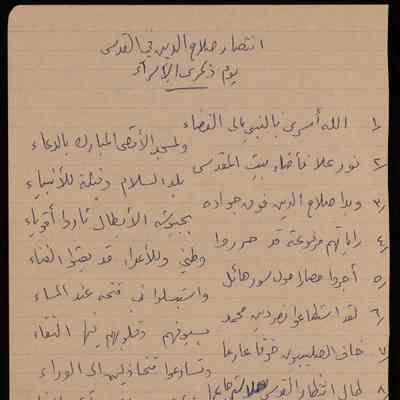 انتصار صلاح الدين في القدس
يوم ذكرى الإسراء
١/ الله أسرى بالنبي إلى الفضاء
ولمسجد الأقصى المبارك بالدعاء
٢/ نور علا فأضاء بيت المقدس
بلد السلام وقبلة للأنبياء
٣/ وبدا صلاح الدين فوق جواده
بجيوشه الأبطال ثاروا أقوياء
٤/ راياتهم مرفوعة قد حرروا
وطني وللأعداء قد
٥/ أجروا حصارا حول سور هائل
واستبسلوا في فتحه عند المساء
٦/ لقد استطاعوا نصر دين محمد
بسيوفهم وقلوبهم فيها النقاء
٧/ خاف الصليبيون خوفا عارما
وتسارعوا متخاذلين إلى الوراء
٨/ طال انتظار القدس